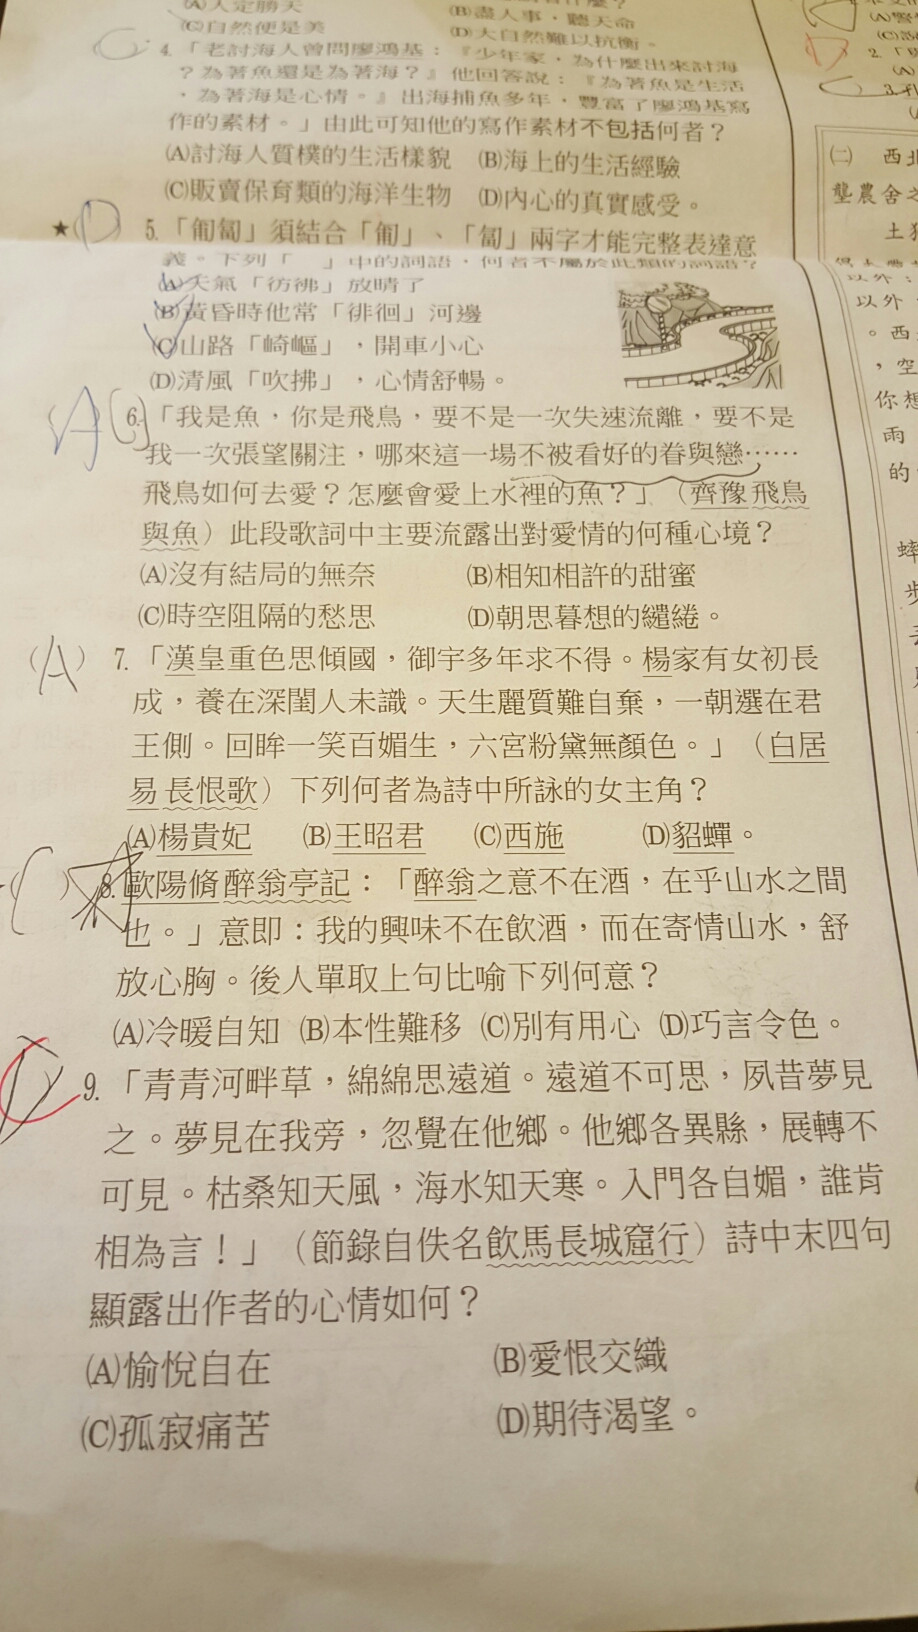 (A)人定勝天
(B)盡人事，聽天命
(C)自然便是美
(D)大自然難以抗衡。
4.「老討海人曾問廖鴻基：『少年家，為什麼出來討海
？為著魚還是為著海？』他回答說：『為著魚是生活
，為著海是心情。』出海捕魚多年，豐富了廖鴻基寫
作的素材。」由此可知他的寫作素材不包括何者？
(A)討海人質樸的生活樣貌 (B)海上的生活經驗
(C)販賣保育類的海洋生物 (D)內心的真實感受。
★(D) 5.「匍匐」須結合「匍」、「匐」兩字才能完整表達意
義。下列「 」中的詞語，何者不屬於此類的詞語？
(A)天氣「彷彿」放晴了
(B)黃昏時他常「徘徊」河邊
(C)山路「崎嶇」，開車小心
(D)清風「吹拂」，心情舒暢。
(A) 6.「我是魚，你是飛鳥，要不是一次失速流離，要不是
我一次張望關注，哪來這一場不被看好的眷與戀……
飛鳥如何去愛？怎麼會愛上水裡的魚？」（齊豫飛鳥
與魚）此段歌詞中主要流露出對愛情的何種心境？
(A)沒有結局的無奈 (B)相知相許的甜蜜
(C)時空阻隔的愁思 (D)朝思暮想的繾綣。
(A) 7.「漢皇重色思傾國，御宇多年求不得。楊家有女初長
成，養在深閨人未識。天生麗質難自棄，一朝選在君
王側。回眸一笑百媚生，六宮粉黛無顏色。」（白居
易長恨歌）下列何者為詩中所詠的女主角？
(A)楊貴妃 (B)王昭君 (C)西施 (D)貂蟬。
(C) 8.歐陽脩醉翁亭記：「醉翁之意不在酒，在乎山水之間
也。」意即：我的興味不在飲酒，而在寄情山水，舒
放心胸。後人單取上句比喻下列何意？
(A)冷暖自知 (B)本性難移 (C)別有用心 (D)巧言令色。
9.「青青河畔草，綿綿思遠道。遠道不可思，夙昔夢見
之。夢見在我旁，忽覺在他鄉。他鄉各異縣，展轉不
可見。枯桑知天風，海水知天寒。入門各自媚，誰肯
相為言！」（節錄自佚名飲馬長城窟行）詩中末四句
顯露出作者的心情如何？
(A)愉悅自在 (B)愛恨交織
(C)孤寂痛苦 (D)期待渴望。
2.
(A)
(二) 西北
壟農舍之
以外：
以外
。西
，空
你想
雨
的